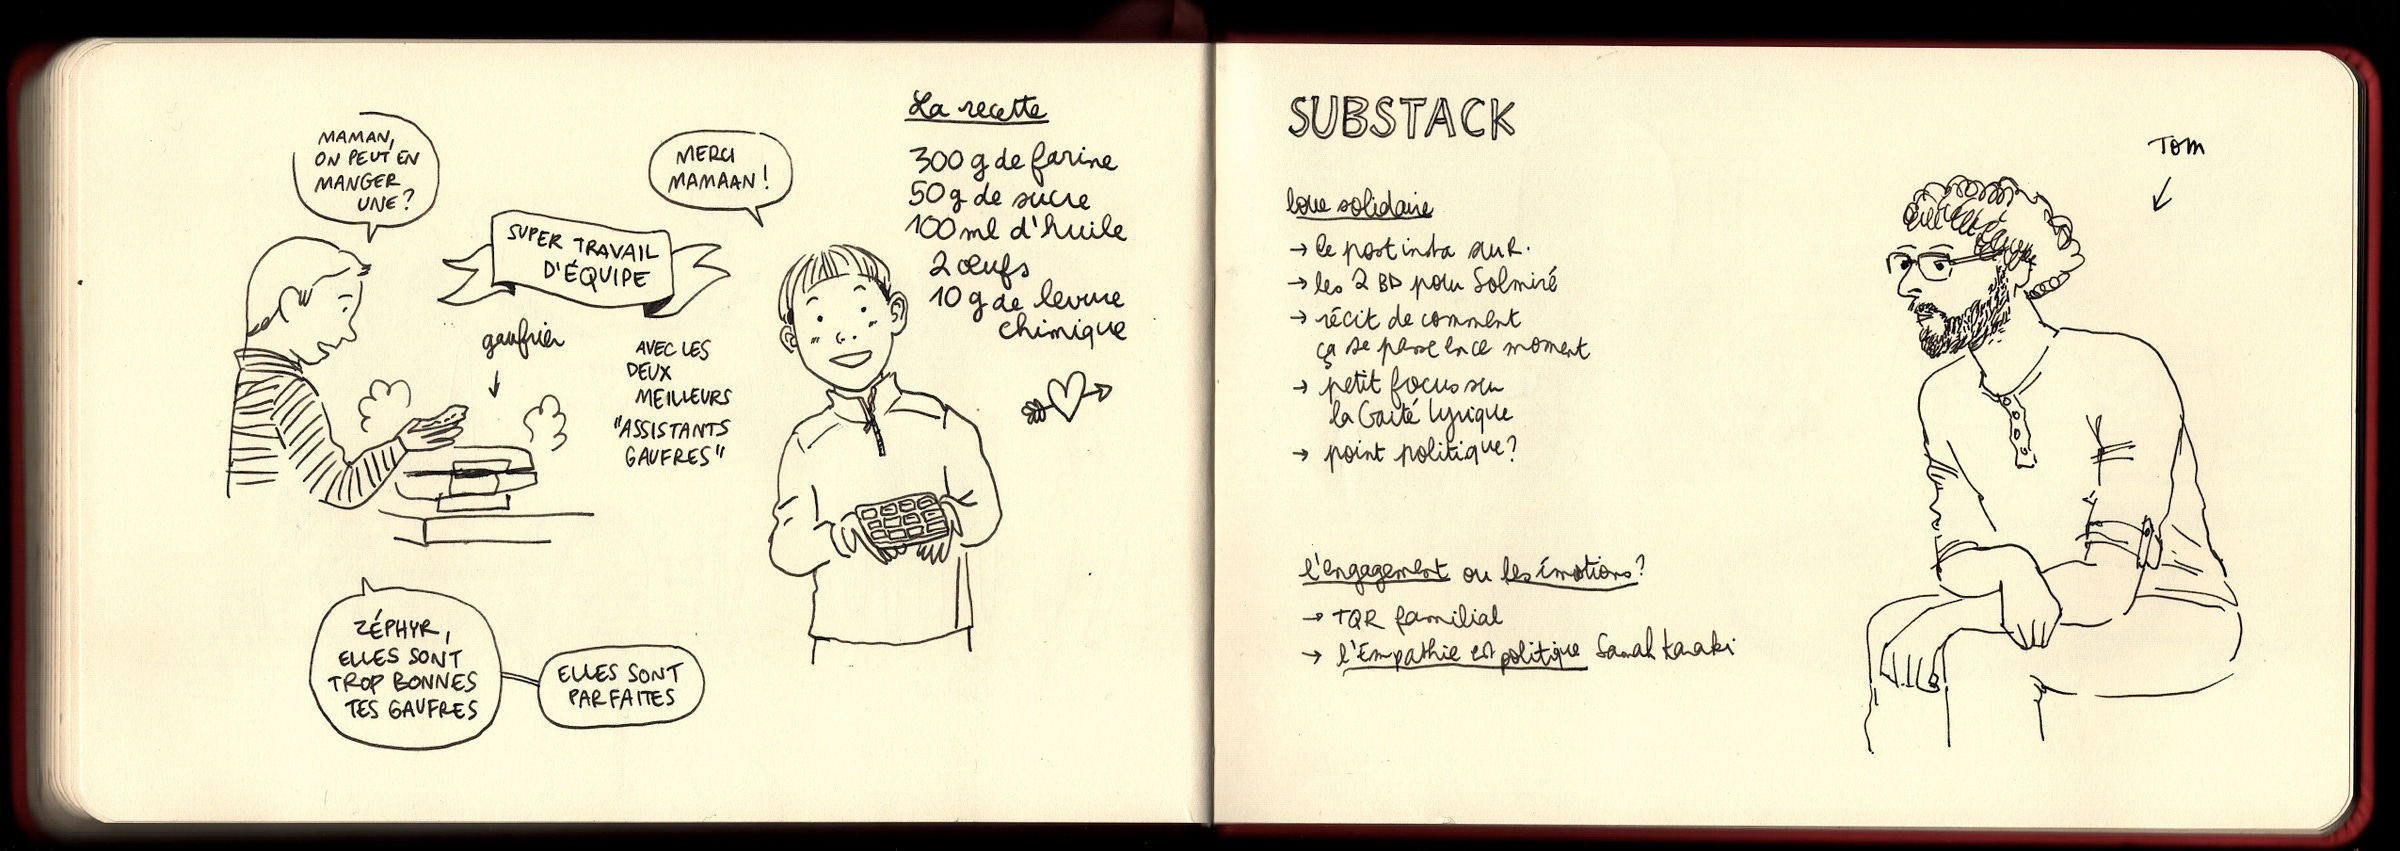 MAMAN,
ON PEUT EN
MANGER
UNE?
SUPER TRAVAIL
D'ÉQUIPE
MERCI
MAMAAN!
La recette
300 g de farine
50 g de sucre
100 ml d'huile
2 œufs
10 g de levure
chimique
gaufrier
AVEC LES
DEUX
MEILLEURS
"ASSISTANTS
GAUFRES"
ZÉPHYR,
ELLES SONT
TROP BONNES
TES GAUFRES
ELLES SONT
PARFAITES
SUBSTACK
Tom
love solidaire
→ le post insta sur R.
→ les 2 BD pour Solmiré
→ récit de comment
ça se passe en ce moment
→ petit focus sur
la Gaité Lyrique
→ point politique?
l'engagement ou les émotions?
→ TQR familial
→ l'Empathie est politique Samah Karaki